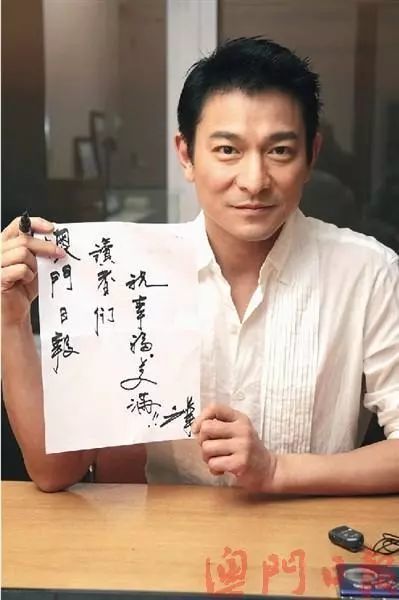 澳門日報
讀者們
祝幸福美滿!!
澳門日報